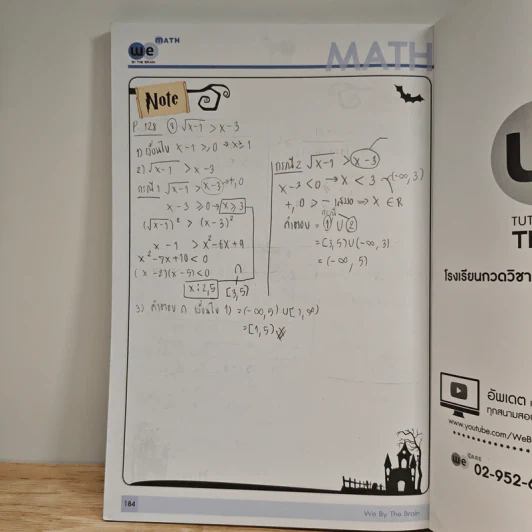 we MATH
BY THE BRAIN
MATH
Note
P. 128 ⑧ √x-1 > x-3
1) เงื่อนไข x-1 ≥ 0 → x ≥ 1
2) √x-1 > x-3
กรณี 1 √x-1 > x-3 → +, 0
x-3 ≥ 0 → x ≥ 3
(√x-1)² > (x-3)²
x-1 > x²-6x+9
x²-7x+10 < 0
(x-2)(x-5) < 0
∩
x : 2,5 [3,5)
กรณี 2 √x-1 > x-3 -
x-3 < 0 → x < 3 → (-∞, 3)
+, 0 > - เสมอ → x ∈ R
คำตอบ = ① ∪ ②
= [3,5) ∪ (-∞, 3)
= (-∞, 5)
3) คำตอบ ∩ เงื่อนไข 1) = (-∞, 5) ∪ [1, ∞)
= [1, 5)
184
We By The Brain
TUT
โรงเรียนกวดวิชา
อัพเดต
ทุกสนามสอบ
www.youtube.com/WeB
we CARE
02-952-6